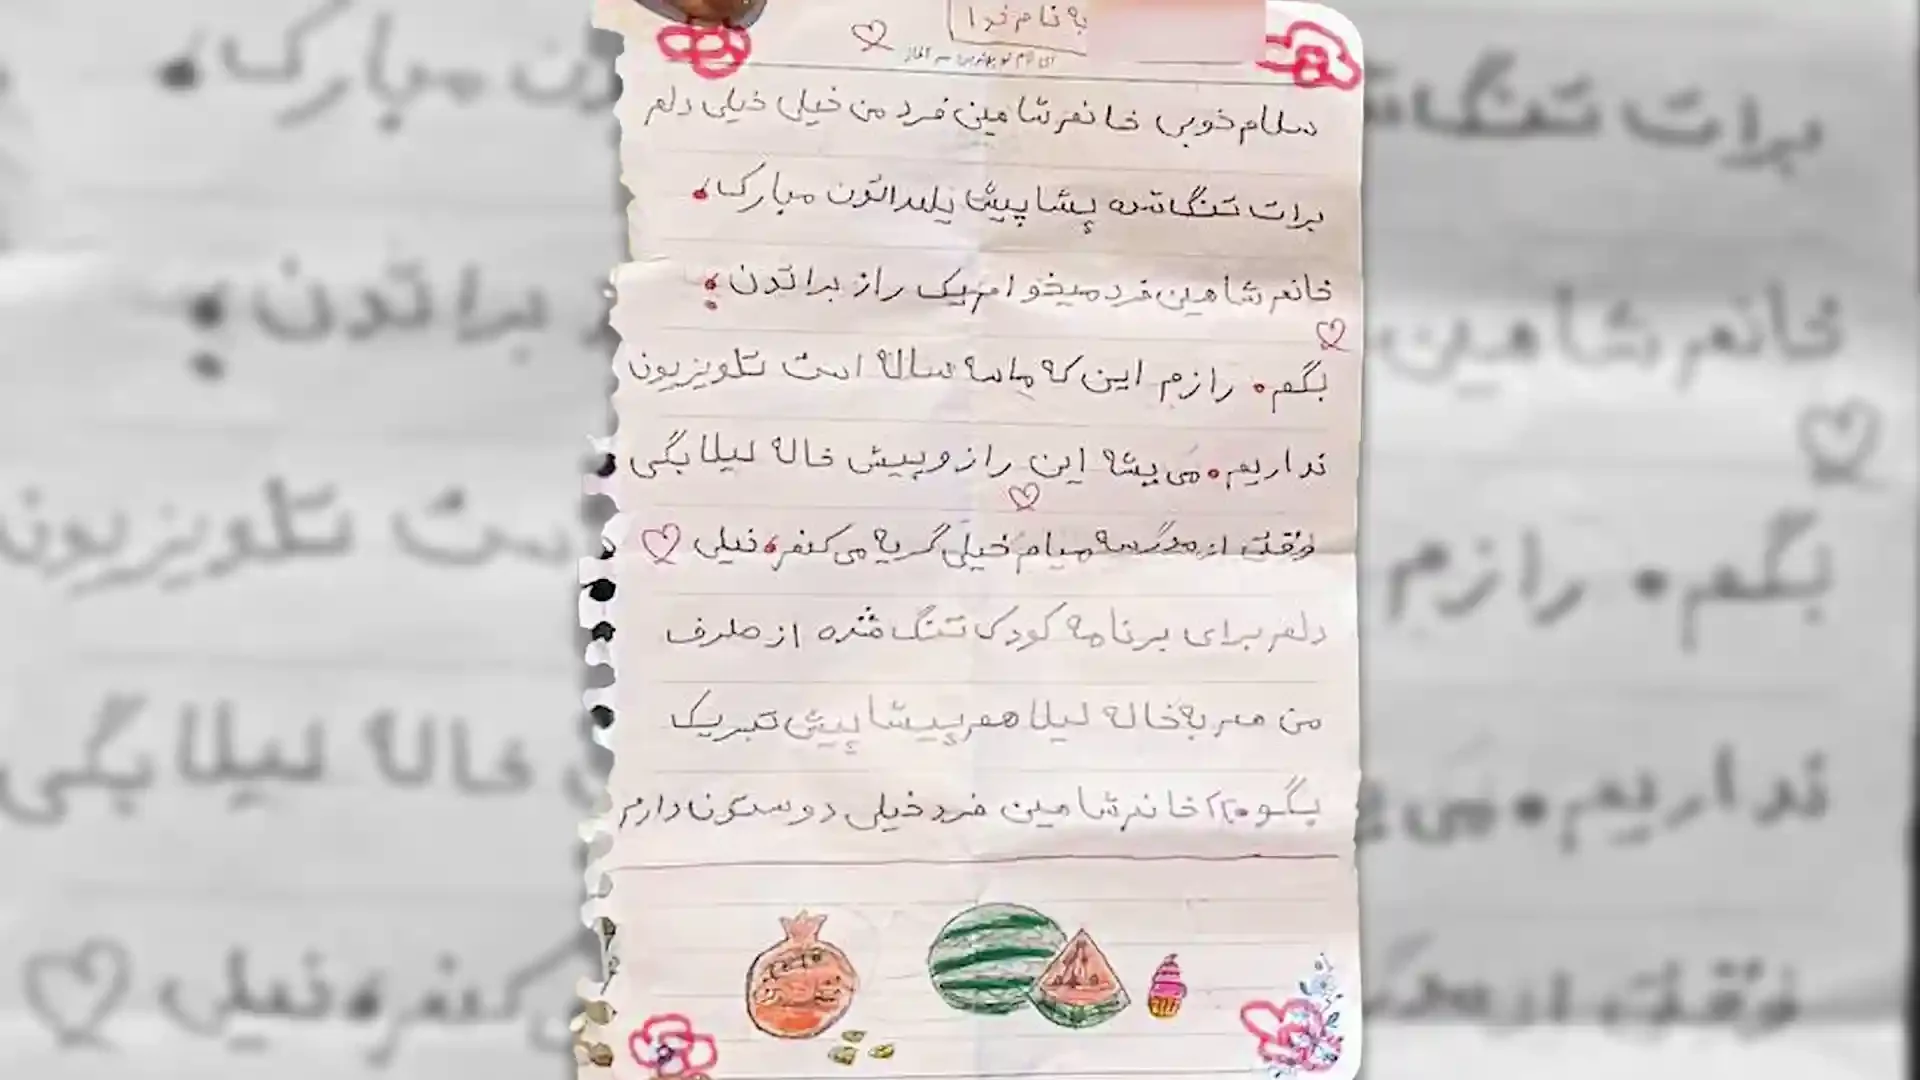 به نام خدا
ای نام تو بهترین سر آغاز
سلام خوبی خانم شاهین فرد من خیلی خیلی دلم
برات تنگ شده پیشا پیش یلداتون مبارک.
خانم شاهین فرد میخوام یک راز براتون
بگم. رازم این که ما سه ساله است تلویزیون
نداریم. می یشه این راز و پیش خاله لیلا بگی
وقت از مدرسه میام خیلی گریه می کنم خیلی
دلم برای برنامه کودک تنگ شده از طرف
من به خاله لیلا هم پیشا پیش تبریک
بگو خانم شاهین فرد خیلی دوستون دارم